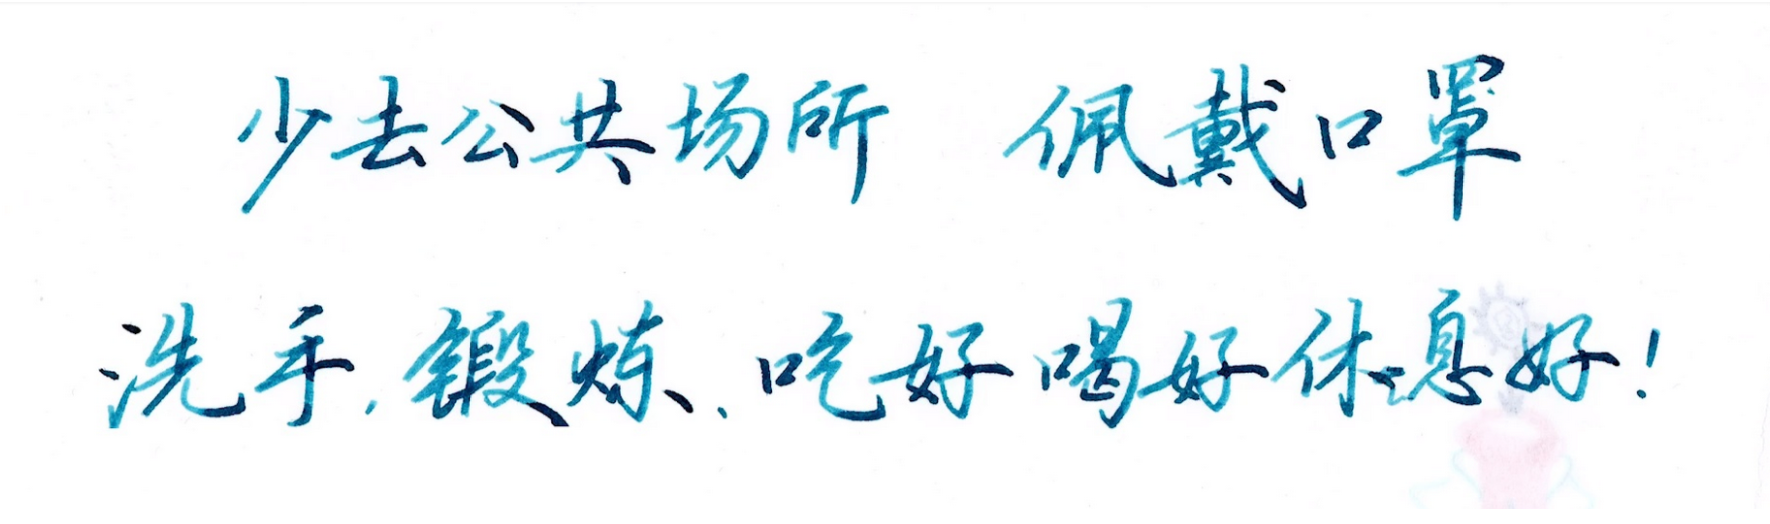 少去公共场所 佩戴口罩
洗手、锻炼、吃好喝好休息好！